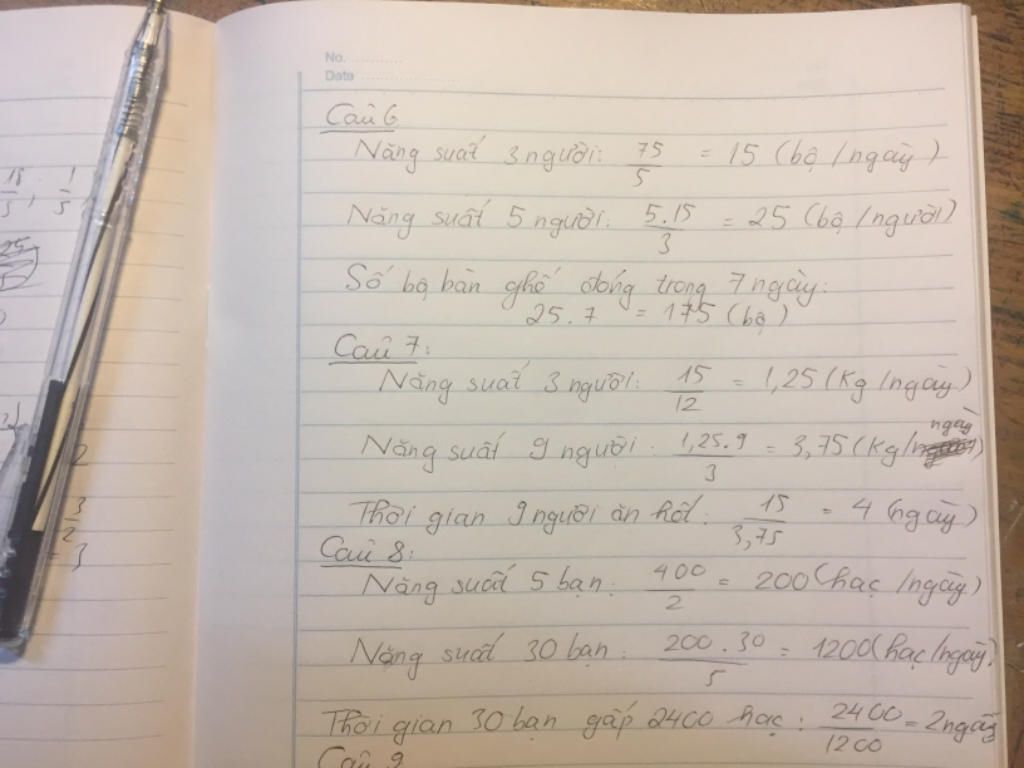 No. ............
Date ........................
Câu 6
Năng suất 3 người: 75/5 = 15 (bộ/ngày)
Năng suất 5 người: 5.15/3 = 25 (bộ/người)
Số bộ bàn ghế đóng trong 7 ngày:
25.7 = 175 (bộ)
Câu 7:
Năng suất 3 người: 15/12 = 1,25 (Kg/ngày)
Năng suất 9 người: 1,25.9/3 = 3,75 (Kg/ngày)
Thời gian 9 người ăn hết: 15/3,75 = 4 (ngày)
Câu 8:
Năng suất 5 bạn: 400/2 = 200 (hạc/ngày)
Năng suất 30 bạn: 200.30/5 = 1200 (hạc/ngày)
Thời gian 30 bạn gấp 2400 hạc: 2400/1200 = 2 ngày
Câu 9